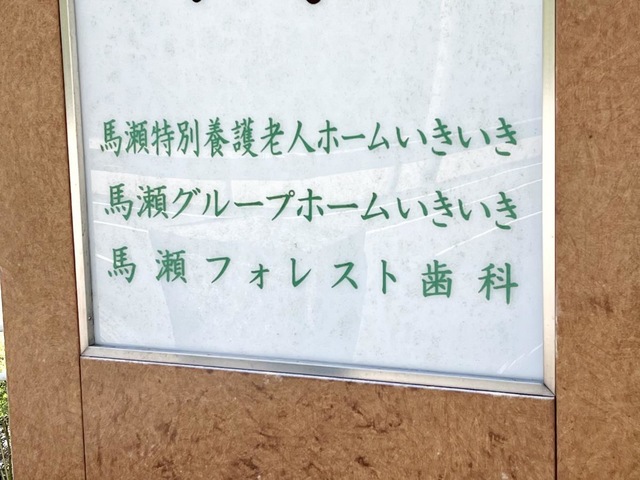 馬瀬特別養護老人ホームいきいき
馬瀬グループホームいきいき
馬瀬フォレスト歯科